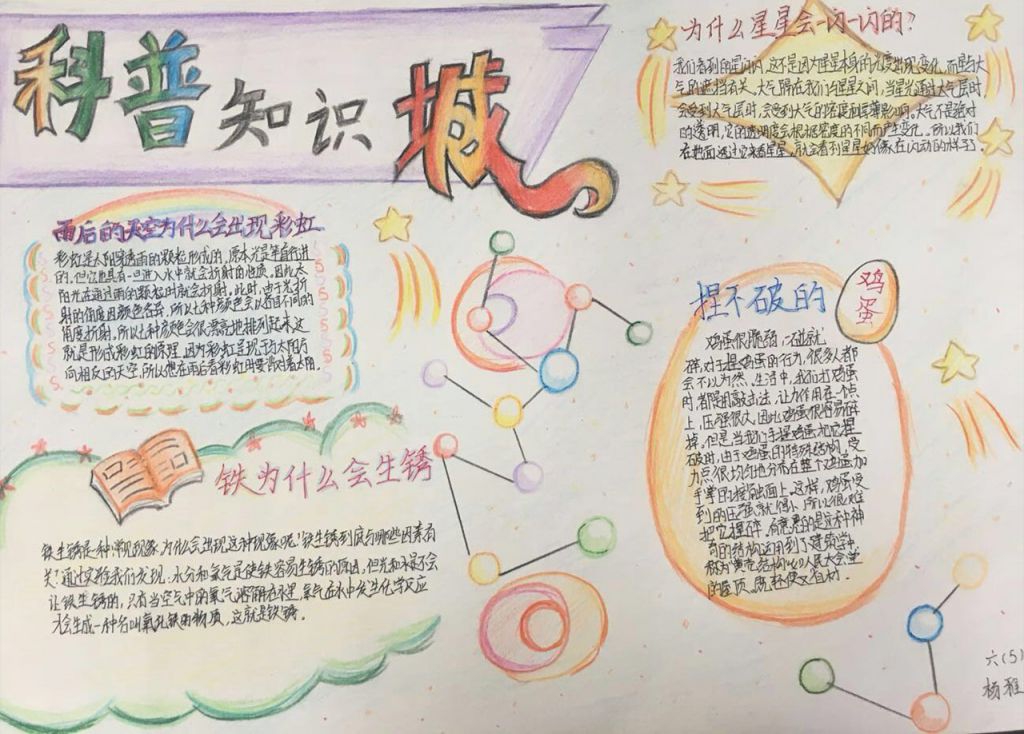 科普知识城
为什么星星会一闪一闪的?
我们看到的星闪闪,这不是因为星星本身的光度出现变化,而是与大
气的遮挡有关。大气隔在我们与星星之间,当星光通过大气层时
会受到大气层时,会受到大气的密度和厚薄影响。大气不是绝对
的透明,它的透明度会根据密度的不同而产生变化。所以我们
在地面透过它来看星星,就会看到星星好像在闪动的样子了
雨后的天空为什么会出现彩虹
彩虹是太阳穿透雨的颗粒形成的,原本光是笔直行进
的,但它也具有一旦进入水中就会折射的性质。因此太
阳光在通过雨的颗粒时就会折射。此时,由于光折
射的角度因颜色各异,所以七种颜色会以各自不同的
角度折射,所以七种颜色会很漂亮地排列起来,这
就是形成彩虹的原理,因为彩虹呈现于与太阳方
向相反的天空,所以想在雨后看彩虹时要背对着太阳。
捏不破的
鸡蛋
鸡蛋很脆弱,一碰就
碎,对于捏鸡蛋的行为,很多人都
会不以为然。生活中,我们打鸡蛋
时,都是用敲击法,让力作用在一个点
上,压强很大,因此鸡蛋很容易碎
掉。但是当我们手握鸡蛋把它捏
破时,由于鸡蛋的特殊结构,受
力点很均匀地分布在整个鸡蛋加
手掌的接触面上。这样,鸡蛋受
到的压强就偏小,所以很难
把它捏碎。有意思的是这种神
奇的结构运用到了建筑学中,
称为薄壳结构,
的屋顶,既轻便又省材。
铁为什么会生锈
铁生锈是一种常见现象,为什么会出现这种现象呢?铁生锈到底与哪些因素有
关?通过实验我们发现,水分和氧气是使铁容易生锈的原因,但光和水是不会
让铁生锈的,只有当空气中的氧气溶解在水里,氧气在水中发生化学反应
才会生成一种名叫氧化铁的物质,这就是铁锈。
六(5)
杨雅